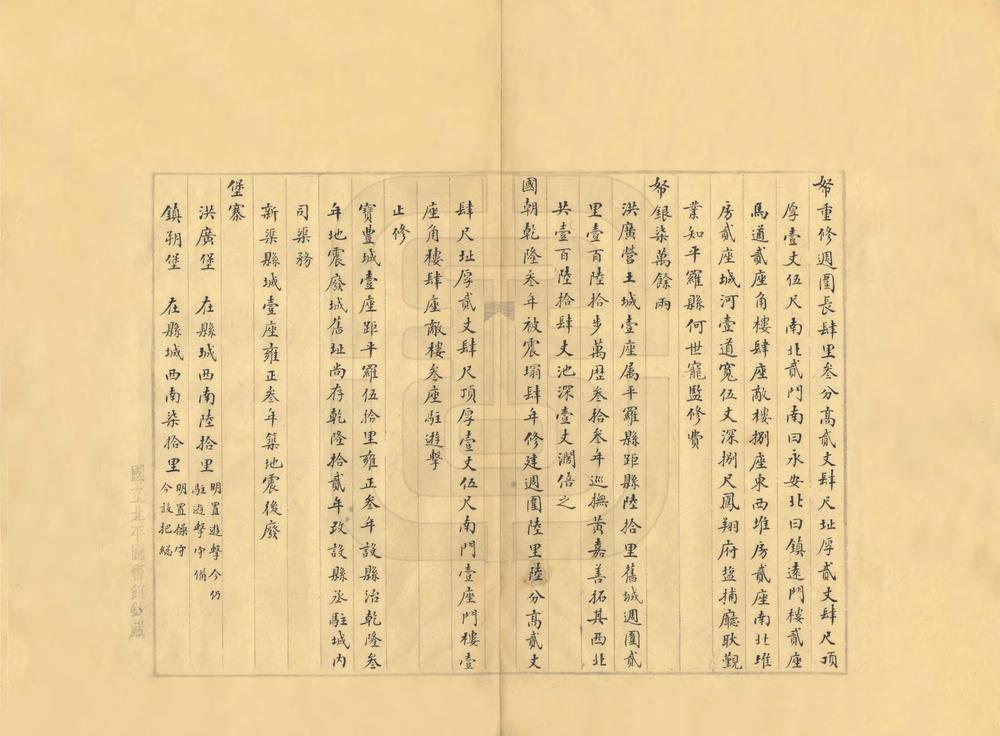 帑重修週圍長肆里叁分髙貳丈肆尺址厚貳丈肆尺頂
厚壹丈伍尺南北貳門南曰永安北曰鎮遠門樓貳座
馬道貳座角樓肆座敵樓捌座東西堆房貳座南北堆
房貳座城河壹道寬伍丈深捌尺鳳翔府塩捕廳耿覲
業知平羅縣何世寵監修費
帑銀柒萬餘兩
洪廣營土城壹座属平羅縣距縣陸拾里舊城週圍貳
里壹百陸拾步萬歷叁拾叁年巡撫黃嘉善拓其西北
共壹百陸拾肆丈池深壹丈濶倍之
國朝乾隆叁年被震塌肆年修建週圍陸里陸分髙貳丈
肆尺址厚貳丈肆尺頂厚壹丈伍尺南門壹座門樓壹
座角樓肆座敵樓叁座駐遊擊
止修
寳豐城壹座距平羅伍拾里雍正叁年設縣治乾隆叁
年地震廢城舊址尚存乾隆拾貳年改設縣丞駐城內
司渠務
新渠縣城壹座雍正叁年築地震後廢
堡寨
洪廣堡 在縣城西南陸拾里 明置遊擊今仍
駐遊擊守備
鎮朔堡 在縣城西南柒拾里 明置操守
今設把總
國立北平圖書館收藏